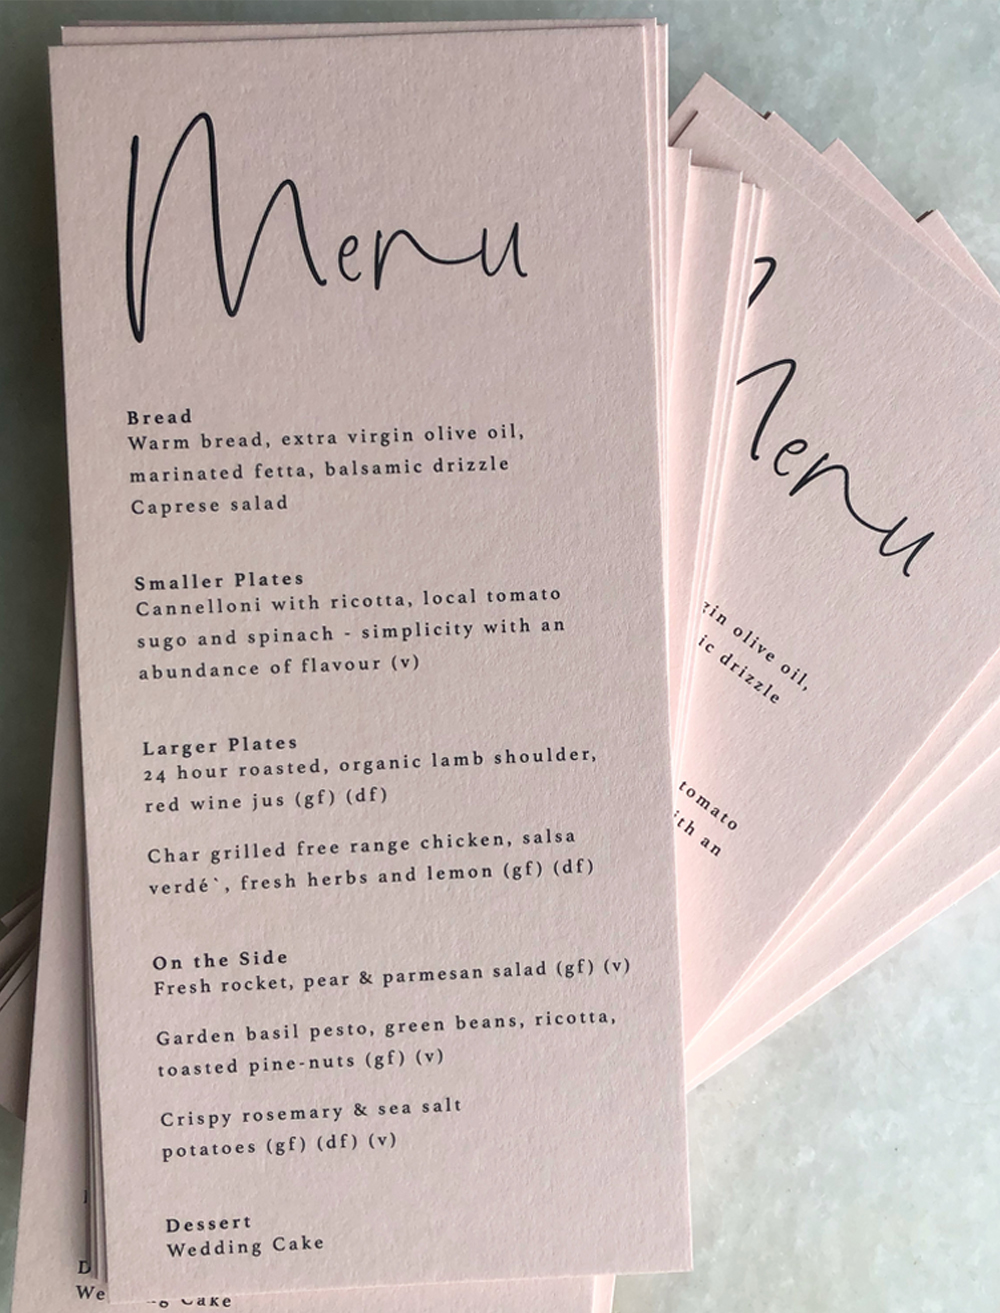 Menu
Bread
Warm bread, extra virgin olive oil,
marinated fetta, balsamic drizzle
Caprese salad
Smaller Plates
Cannelloni with ricotta, local tomato
sugo and spinach - simplicity with an
abundance of flavour (v)
Larger Plates
24 hour roasted, organic lamb shoulder,
red wine jus (gf) (df)
Char grilled free range chicken, salsa
verdé`, fresh herbs and lemon (gf) (df)
On the Side
Fresh rocket, pear & parmesan salad (gf) (v)
Garden basil pesto, green beans, ricotta,
toasted pine-nuts (gf) (v)
Crispy rosemary & sea salt
potatoes (gf) (df) (v)
Dessert
Wedding Cake
Menu
gin olive oil,
ic drizzle
tomato
ith an
D
We
Cake